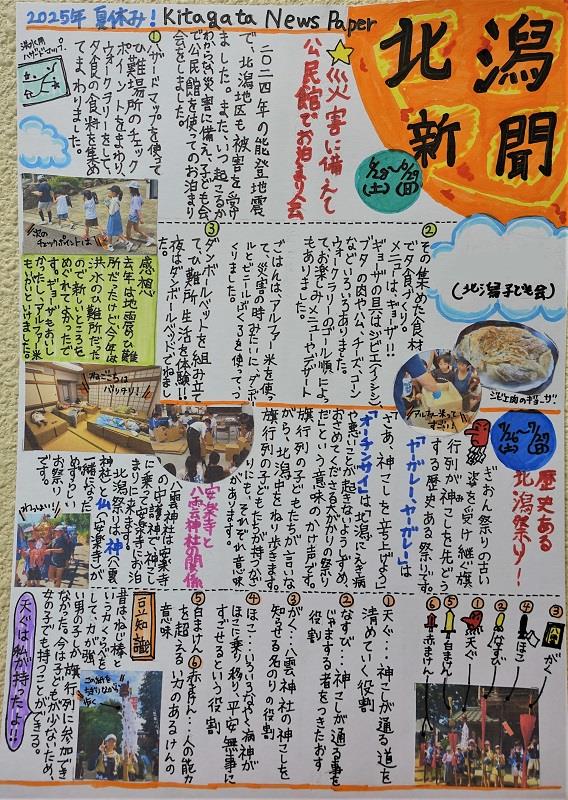 2025年 夏休み! Kitagata News Paper
北潟
新聞
6/28(土)~6/29(日)
(北潟子ども会)
☆災害に備えて
公民館でお泊まり会
二〇二四年の能登地震
で、北潟地区も被害を受け
ました。また、いつ起こるか
わからない災害に備え、子ども会
で公民館を使ってのお泊まり
会をしました。
①ハザードマップを使って
ひ難場所のチェック
ポイントをまわり、
ウォークラリーをして、
夕食の食料を集め
てまわりました。
洪水用
ハザードマップ。
次の
チェックポイントは
②その集めた食材
で夕食づくり。
メニューはギョーザ!!
ギョーザの具はジビエ(イノシシ)
ブタの肉やハム、チーズ、コーン
などいろいろありました。
ウォークラリーのゴール順によっ
て、お楽しみメニューやデザート
もありました。
ごはんは、アルファー米を使っ
て、災害の時みたいに、ダンボー
ルとビニールぶくろを使って、つ
くりました。
③ダンボールベットを組み立て
てひ難所生活を体験!!
夜はダンボールベッドでねまし
た。
感想
去年は地震のひ難
所だったけど、今年は
洪水のひ難所だった
ので新しいところを
めぐれてよかったで
す。ギョーザもおいし
かったし、アルファー米
もおいしかったです。
ねごこちは
バッチリ!!
アルファー米って
すごい!
ジビエ肉のギョーザ!!
7/26(土)~7/27(日)
歴史ある
北潟祭り!
ぎおん祭りの古い
姿を受け継ぐ旗
行列が神こしを先どう
する歴史ある祭りです。
「ヤーガレー、ヤーガレー」は
さあ、神こしを立ち上げよう」
「オーチンサイ」は「北潟にえき病
や悪いことが起きないようしずめ、
おさめてくださる大がかりの祭り
だ」という意味のかけ声です。
旗行列の子どもたちが言いな
がら、北潟中をねり歩きます。
旗行列の子どもたちが持つかざ
りにも、それぞれ意味
があります。
安楽寺と
八雲神社の関係
八雲神社は安楽寺
の守護神で神こし
に乗って安楽寺にお
まりに来ます。
北潟祭りは神(八雲
神社)と仏(安楽寺)が
一緒になった
めずらしい
お祭り
です。
わっしょい!
③がく
④ほこ
②なすび
①天ぐ
⑤白まけん
⑥赤まけん
①天ぐ…神こしが通る道を
清めていく役割
②なすび…神こしが通る事を
じゃまする者をつきたおす
役割
③がく…八雲神社の神こしを
知らせる名のりの役割
④ほこ…いろいろなやく病神が
ほこに乗り移り、平安無事に
すごせるという役割
⑤白まけん⑥赤まけん…人の能力
を超える力のあるけんの
意味
豆知識
昔はねじ棒と
して、力が強
い男の子しか旗行列に参加でき
なかった。今は子どもが少ないため、
女の子でも持つことができる。
天ぐは私が持ったよ!!